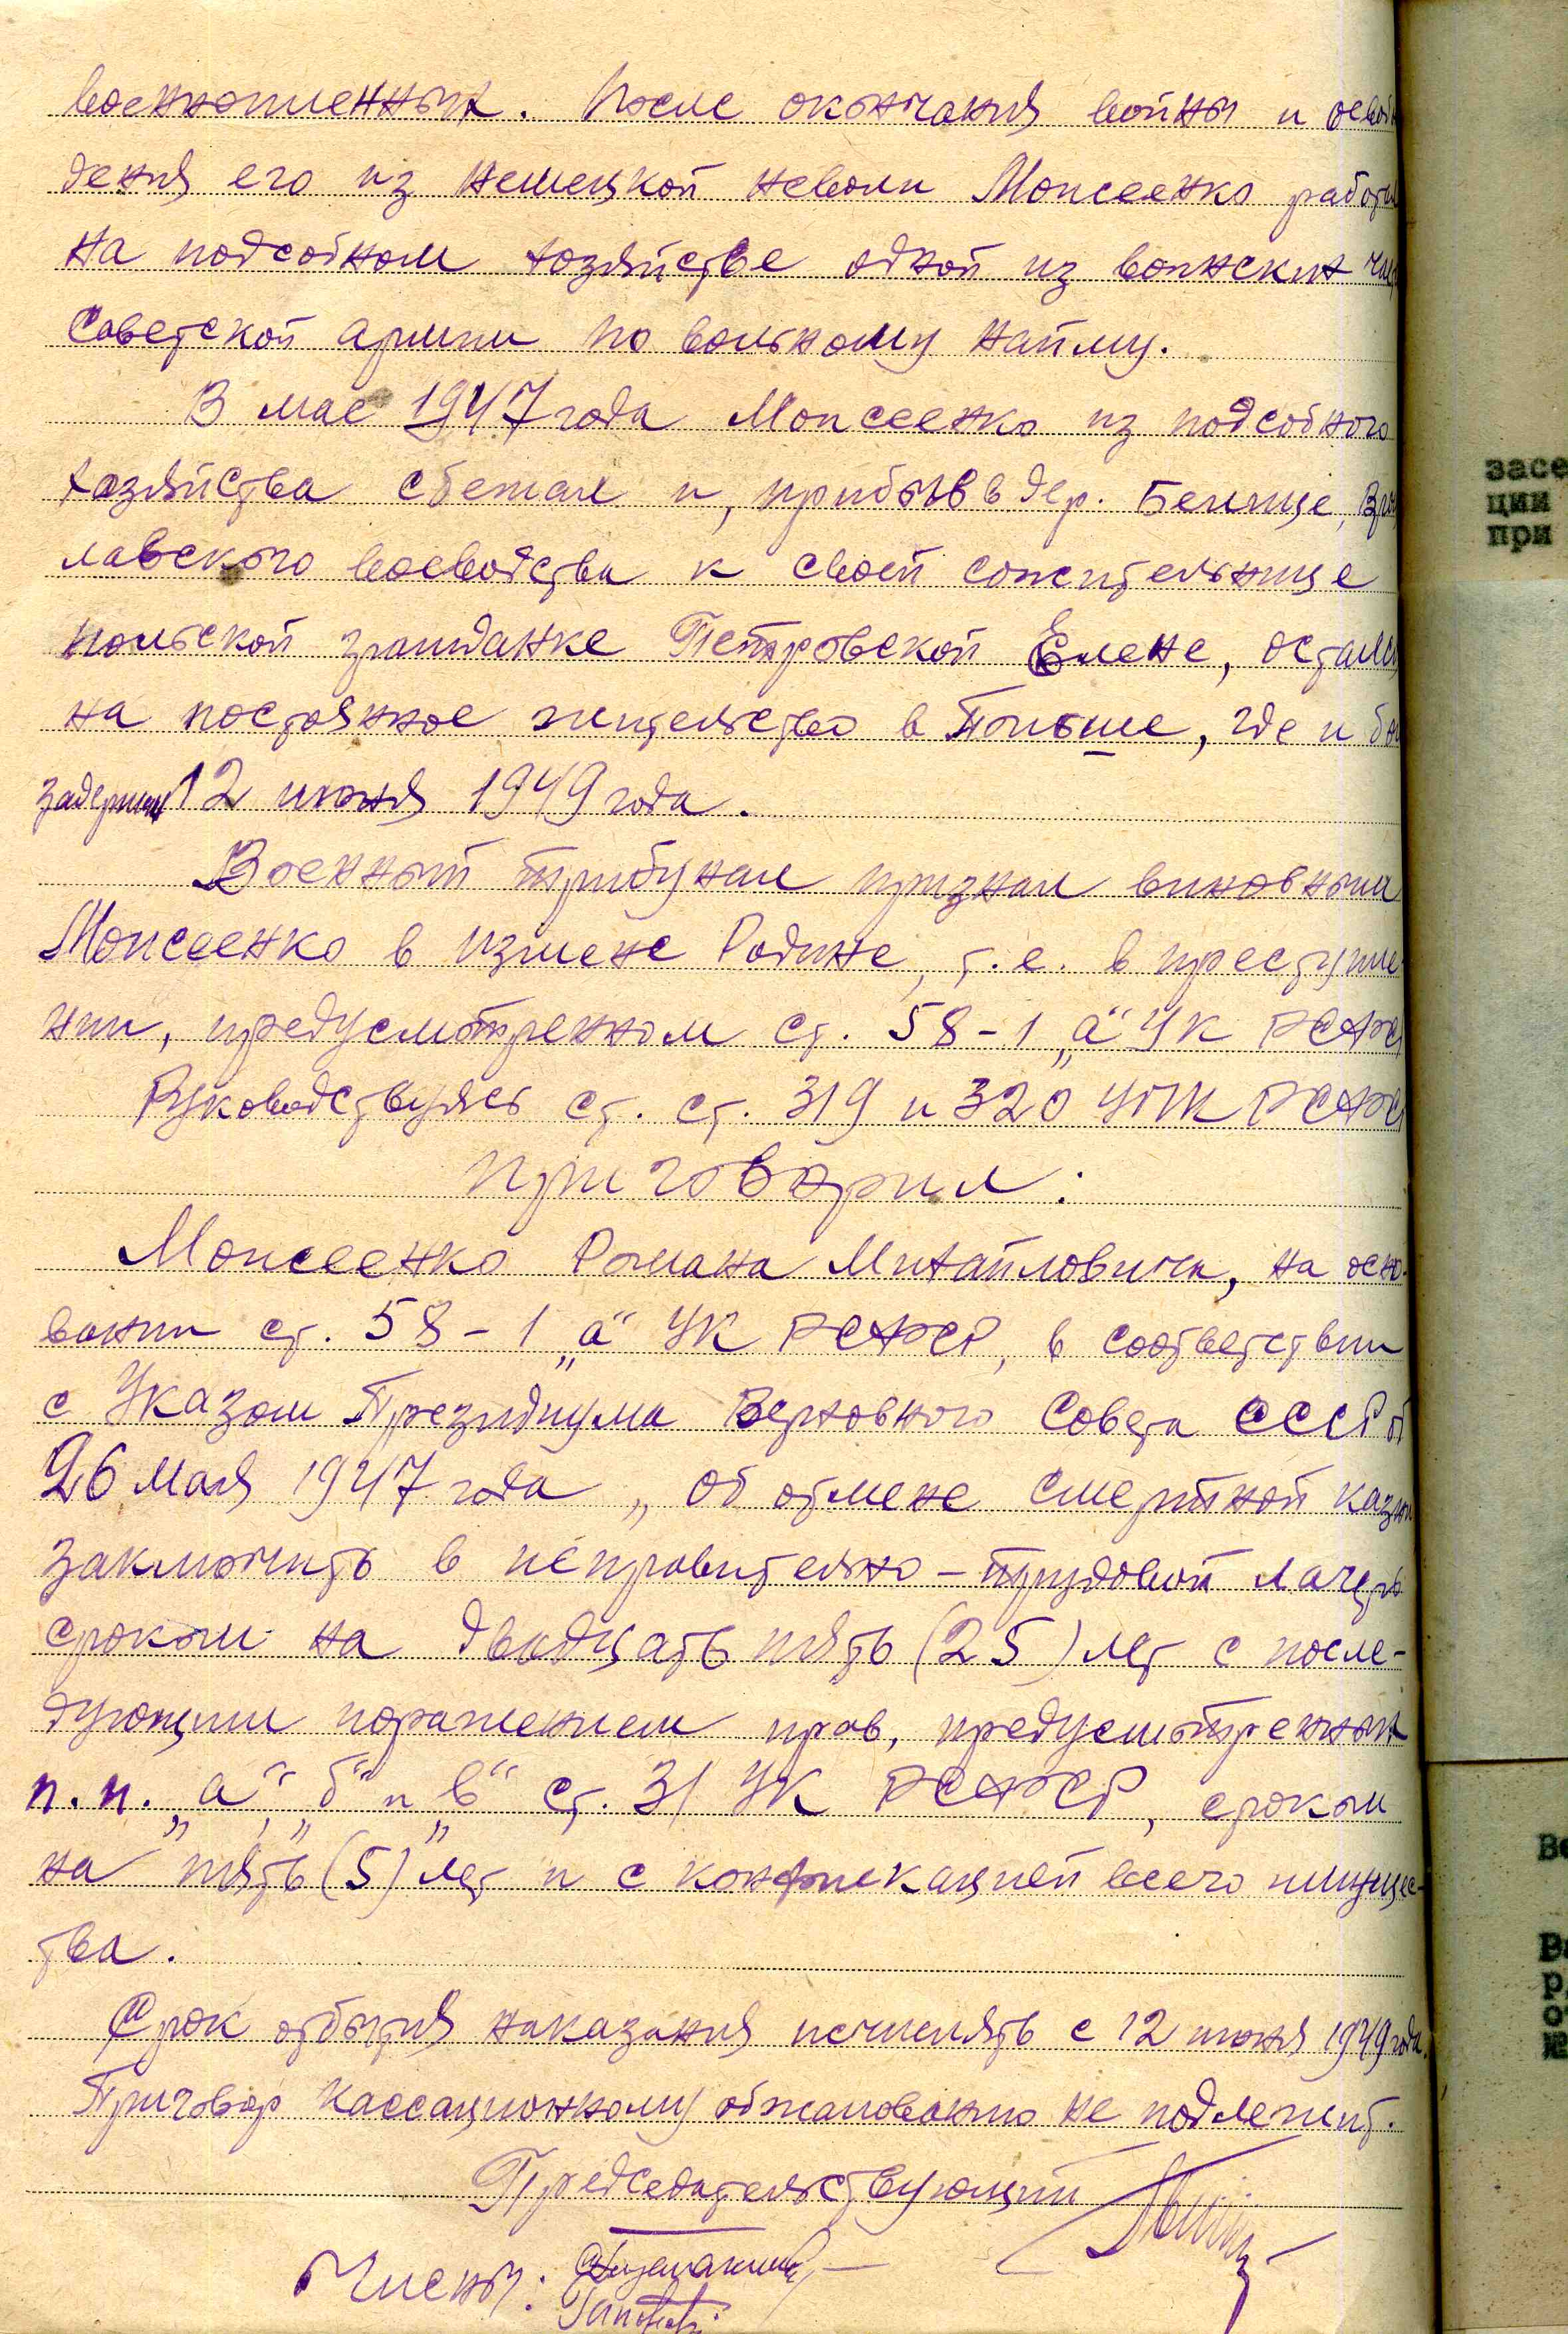 военнопленных. После окончания войны и освобо
дения его из немецкой неволи Моисеенко работал
на подсобном хозяйстве одной из воинских час
Советской армии по вольному найму.
В мае 1947 года Моисеенко из подсобного
хозяйства сбежал и, прибыв в дер. Белице, Вроц
лавского воеводства к своей сожительнице
польской гражданке Петровской Елене, остался
на постоянное жительство в Польше, где и был
задержан 12 июня 1949 года.
Военный трибунал признал виновным
Моисеенко в измене Родине, т.е. в преступле-
нии, предусмотренном ст. 58-1 „а“ УК РСФС
Руководствуясь ст. ст. 319 и 320 УПК РСФС
приговорил:
Моисеенко Романа Михайловича, на осно-
вании ст. 58-1 „а“ УК РСФСР, в соответствии
с Указом Президиума Верховного Совета СССР от
26 мая 1947 года „Об отмене смертной казни
заключить в исправительно-трудовой лагерь
сроком на двадцать пять (25) лет с после-
дующим поражением прав, предусмотренных
п.п. „а“, „б“ и „в“ ст. 31 УК РСФСР, сроком
на пять (5) лет и с конфискацией всего имущес-
тва.
Срок отбытия наказания исчислять с 12 июня 1949 года.
Приговор кассационному обжалованию не подлежит.
Председательствующий
Члены:
засе
ции
при
Ве